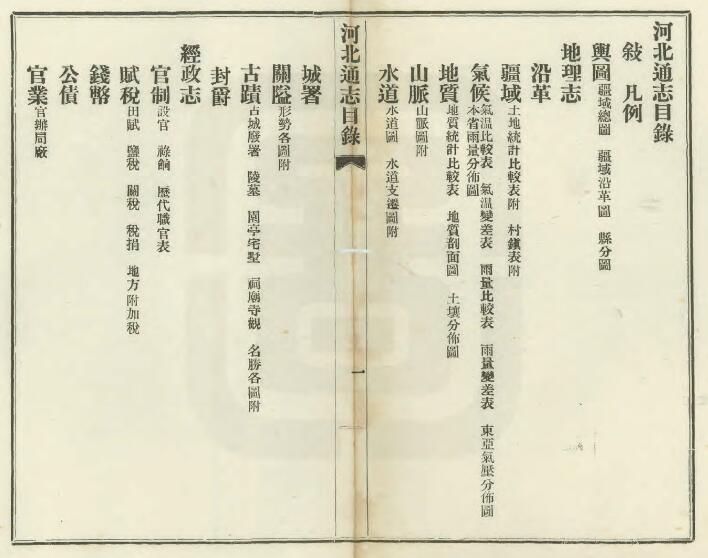 河北通志目錄
敍 凡例
輿圖 疆域總圖 疆域沿革圖 縣分圖
地理志
沿革
疆域 土地統計比較表附 村鎮表附
氣候 氣温比較表 氣温變差表 雨量比較表 雨量變差表 東亞氣壓分佈圖
本省雨量分佈圖
地質 地質統計比較表 地質剖面圖 土壤分佈圖
山脈 山脈圖附
水道 水道圖 水道支遷圖附
河北通志目錄
一
城署
關隘 形勢各圖附
古蹟 古城廢署 陵墓 園亭宅墅 祠廟寺觀 名勝各圖附
封爵
經政志
官制 設官 祿餉 歷代職官表
賦稅 田賦 鹽稅 關稅 稅捐 地方附加稅
錢幣
公債
官業 官辦局廠